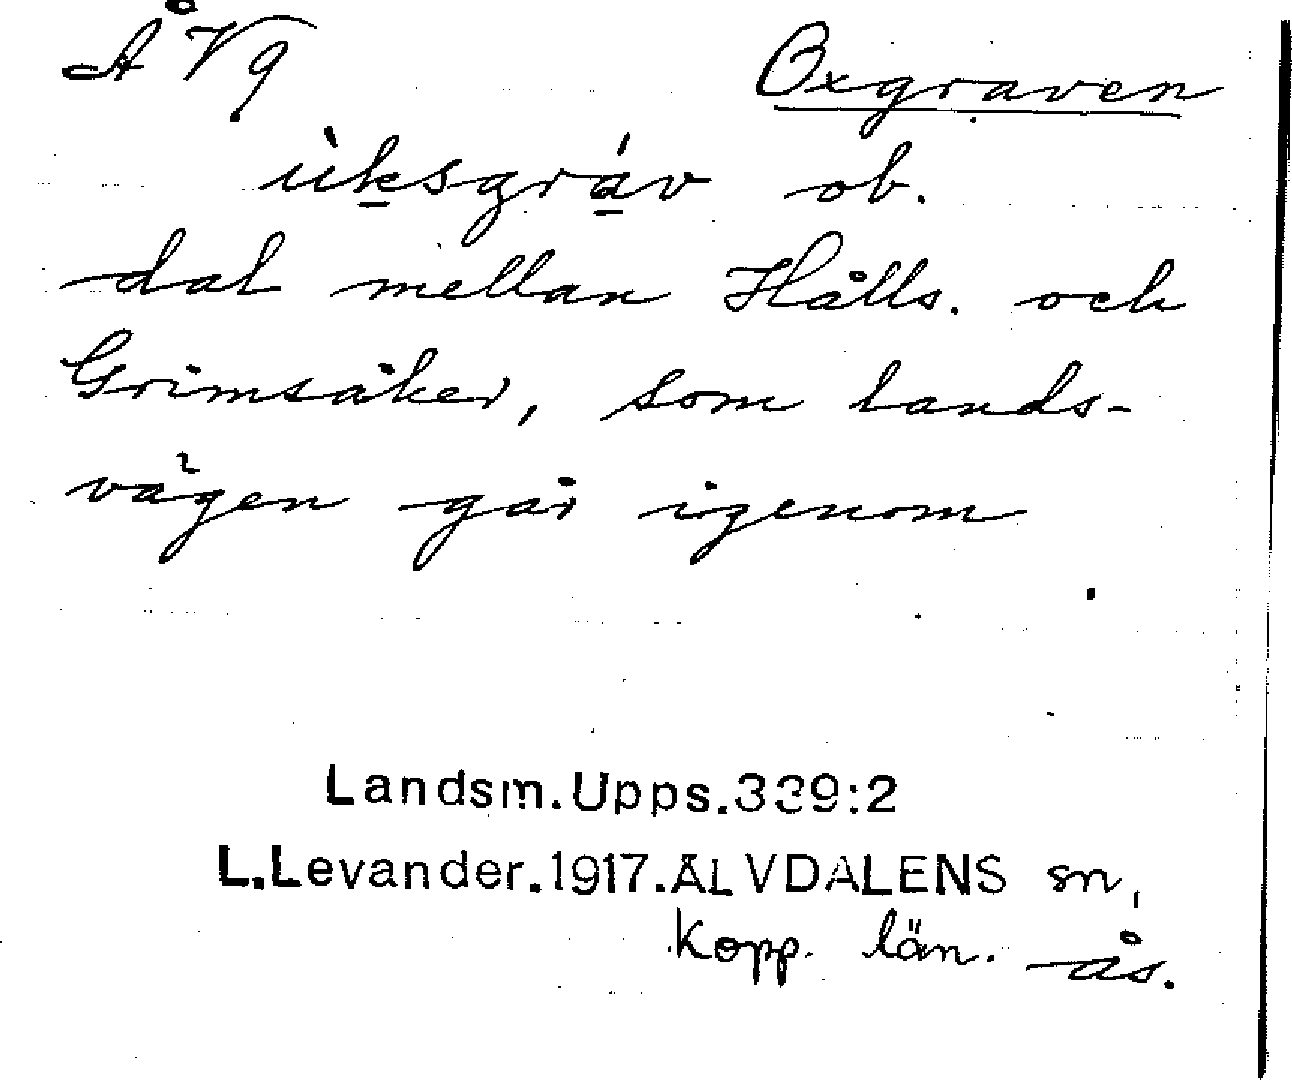 Å Vg
Oxgraven
ùksgráv ob.
dal mellan Hålls. och
Grimsåker, som lands-
vägen går igenom
Landsm.Upps.339:2
L.Levander.1917.ÄLVDALENS sn,
Kopp. län. ås.